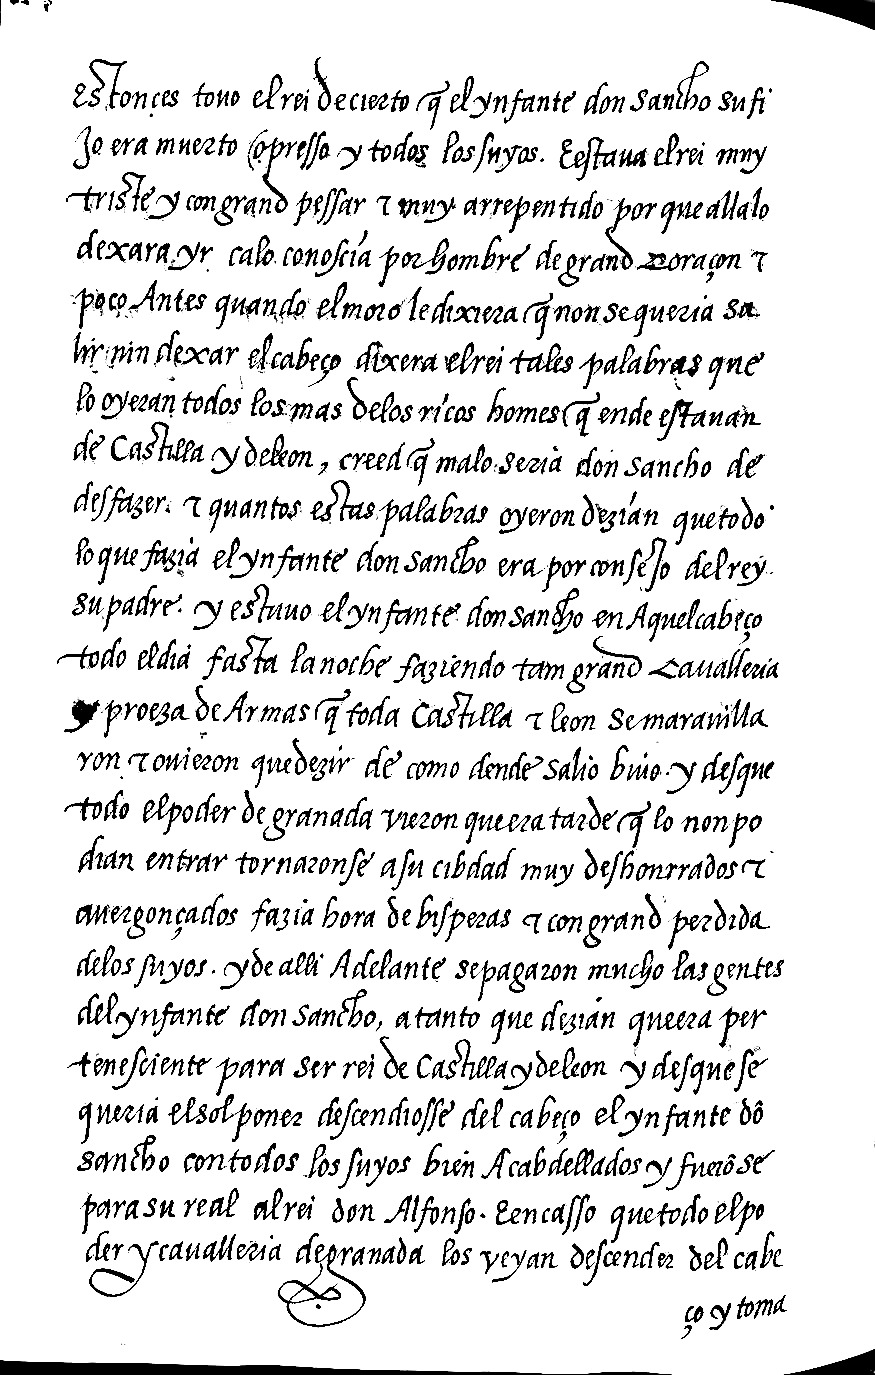 Estonçes tovo el rei de cierto q̃ el ynfante don Sancho su fi
jo era muerto o presso y todos los suyos. E estaua el rei muy
triste y con grand pessar τ muy arrepentido por que alla lo
dexara yr ca lo conoscía por hombre de grand coraçon τ
poco Antes quando el moro le dixiera q̃ non se queria sa
lir nin dexar el cabeço dixera el rei tales palabras que
lo oyeran todos los mas de los ricos homes q̃ ende estauan
de Castilla y de leon, creed q̃ malo seria don sancho de
desfazer. τ quantos estas palabras oyeron dezían que todo
lo que fazia el ynfante don Sancho era por consejo del rey
su padre. y estuuo el ynfante don Sancho en Aquel cabeço
todo el dia fasta la noche faziendo tam grand Cavalleria
y proeza de Armas q̃ toda Castilla τ leon se marauilla
ron τ ouieron que dezir de como dende salio biuo. y desque
todo el poder de granada vieron que era tarde q̃ lo non po
dian entrar tornaronse a su cibdad muy deshonrrados τ
auergonçados fazia hora de bisperas τ con grand perdida
de los suyos. y de alli Adelante se pagaron mucho las gentes
del ynfante don Sancho, a tanto que dezián que era per
tenesciente para ser rei de Castilla y de leon y desque se
queria el sol poner descendiosse del cabeço el ynfante dõ
sancho con todos los suyos bien Acabdellados y fuerõ se
para su real al rei don Alfonso. E en casso que todo el po
der y cavalleria de granada los veyan descender del cabe
ço y toma